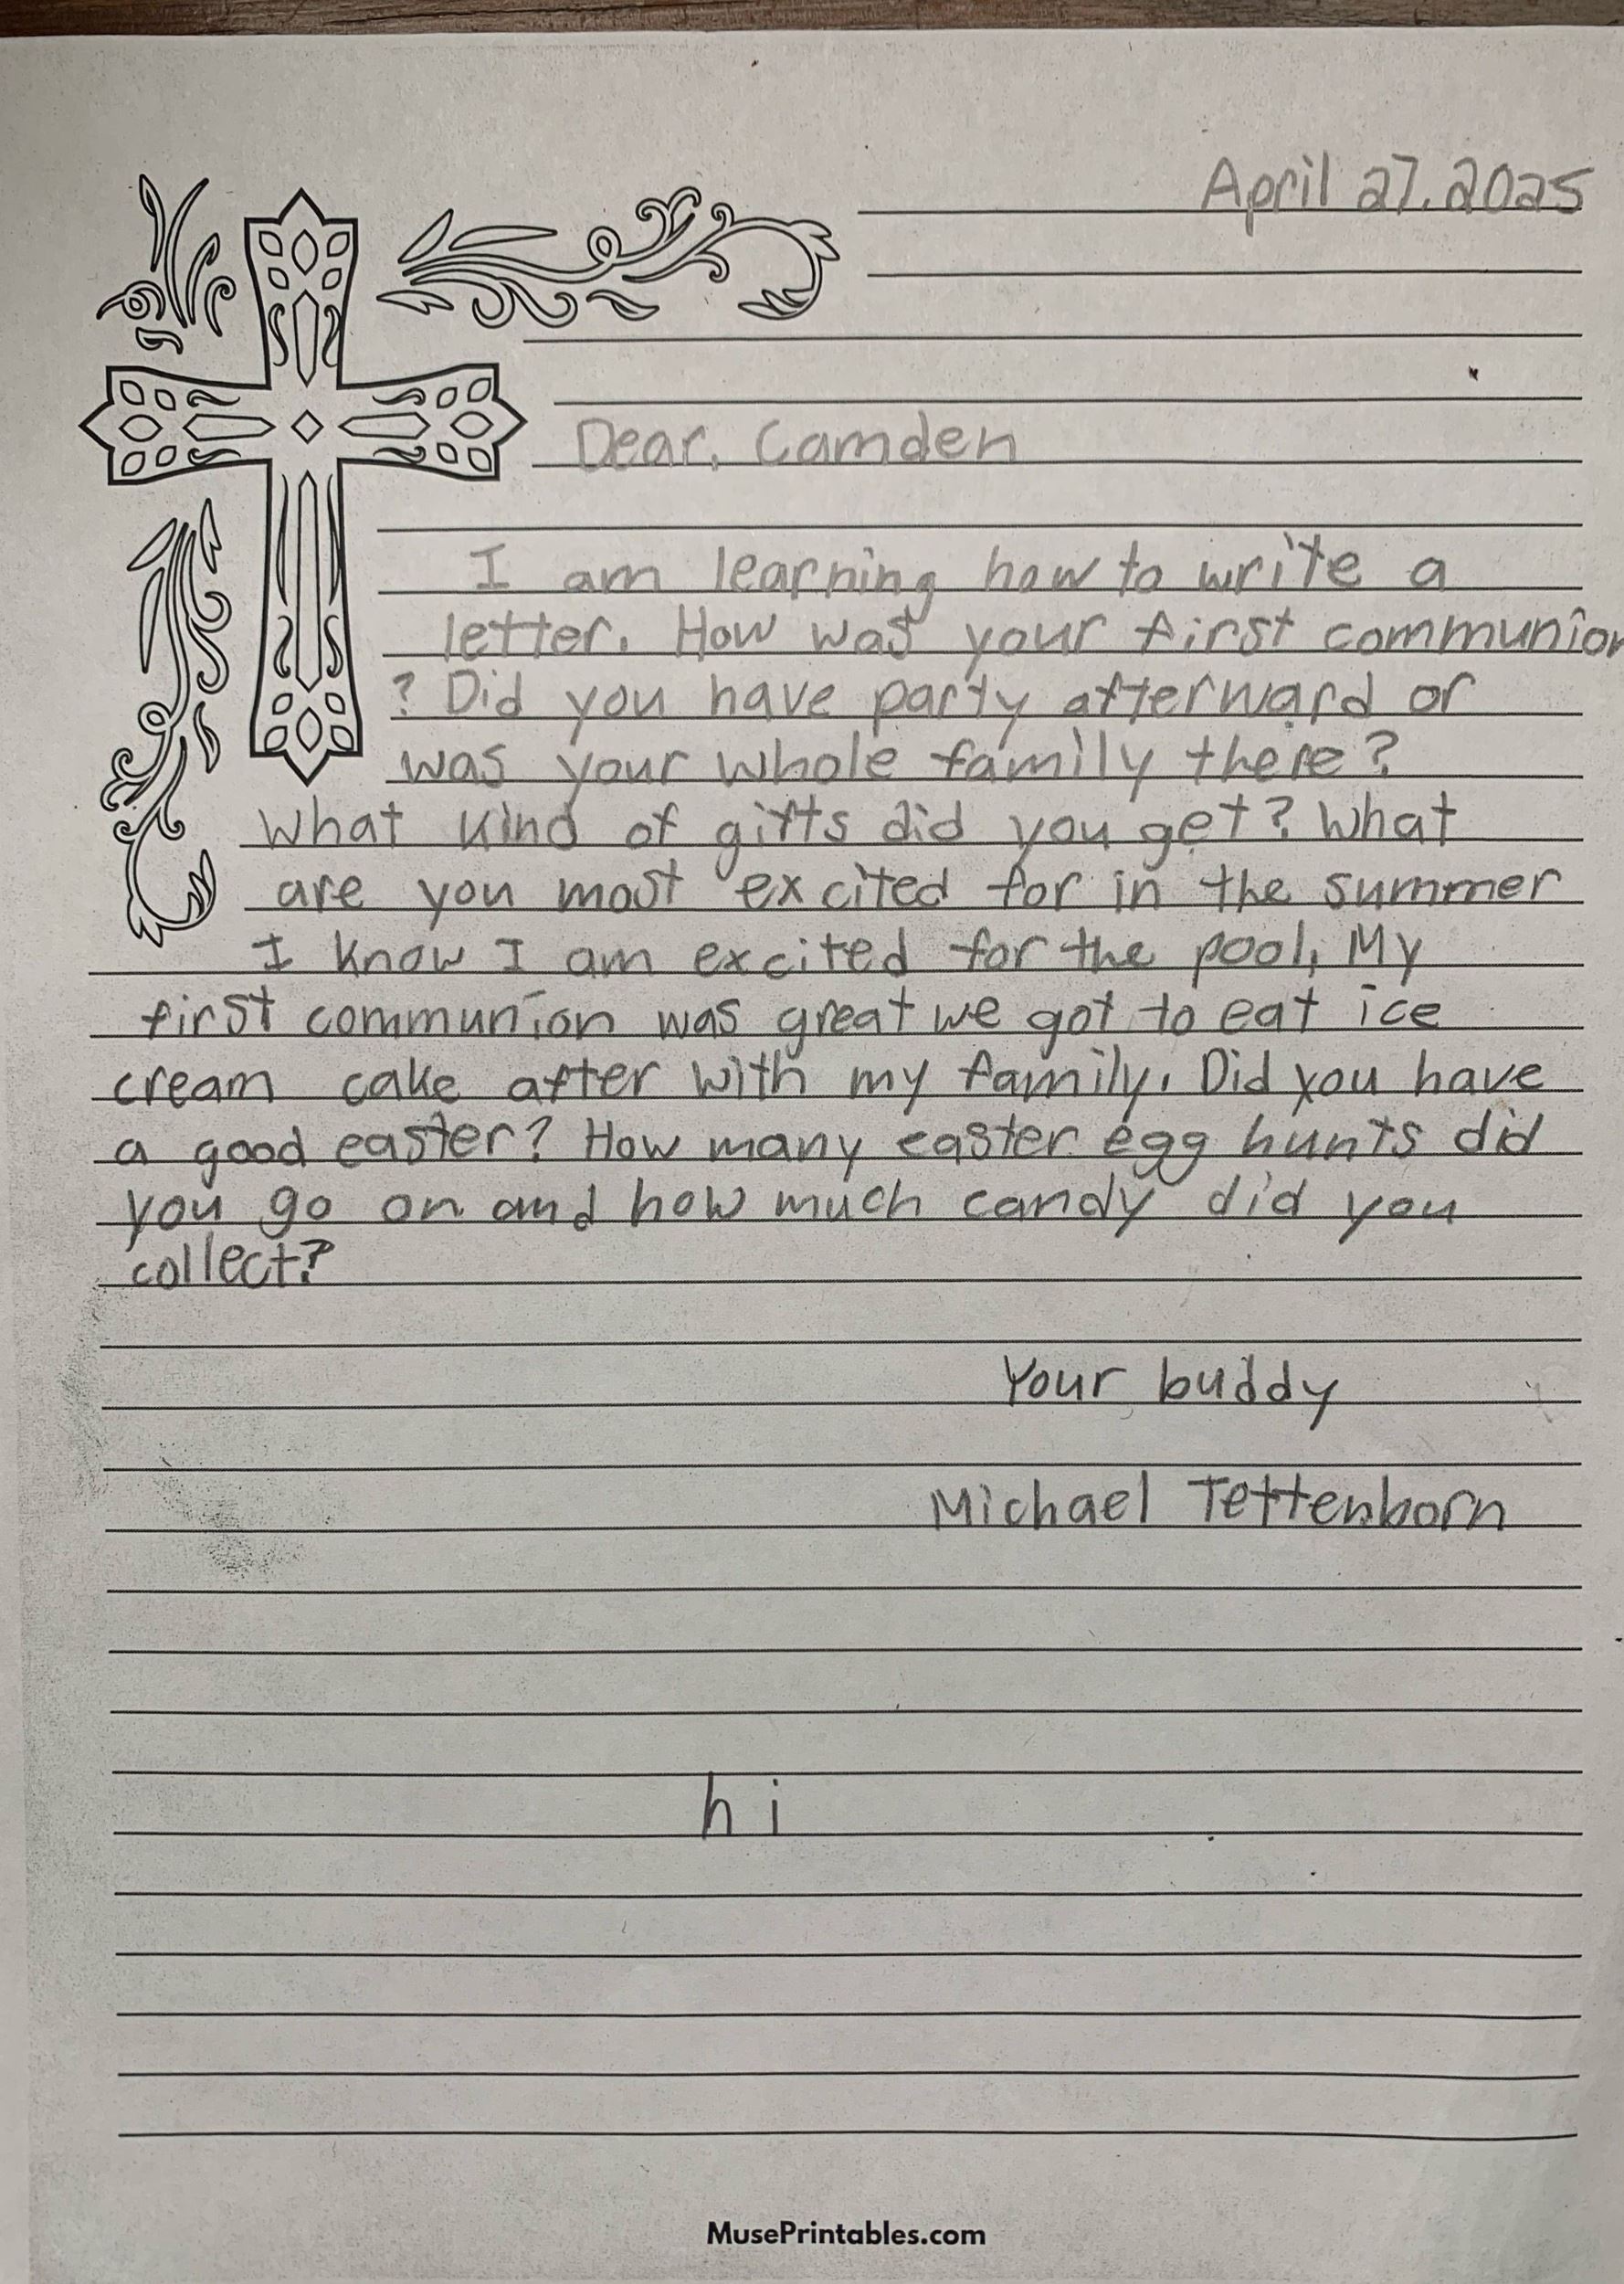 April 27, 2025
Dear, Camden
I am learning how to write a
letter. How was your first communion
? Did you have party afterward or
was your whole family there?
What kind of gifts did you get? What
are you most excited for in the summer
I know I am excited for the pool, My
first communion was great we got to eat ice
cream cake after with my family. Did you have
a good easter? How many easter egg hunts did
you go on and how much candy did you
collect?
Your buddy
Michael Tettenborn
hi
MusePrintables.com